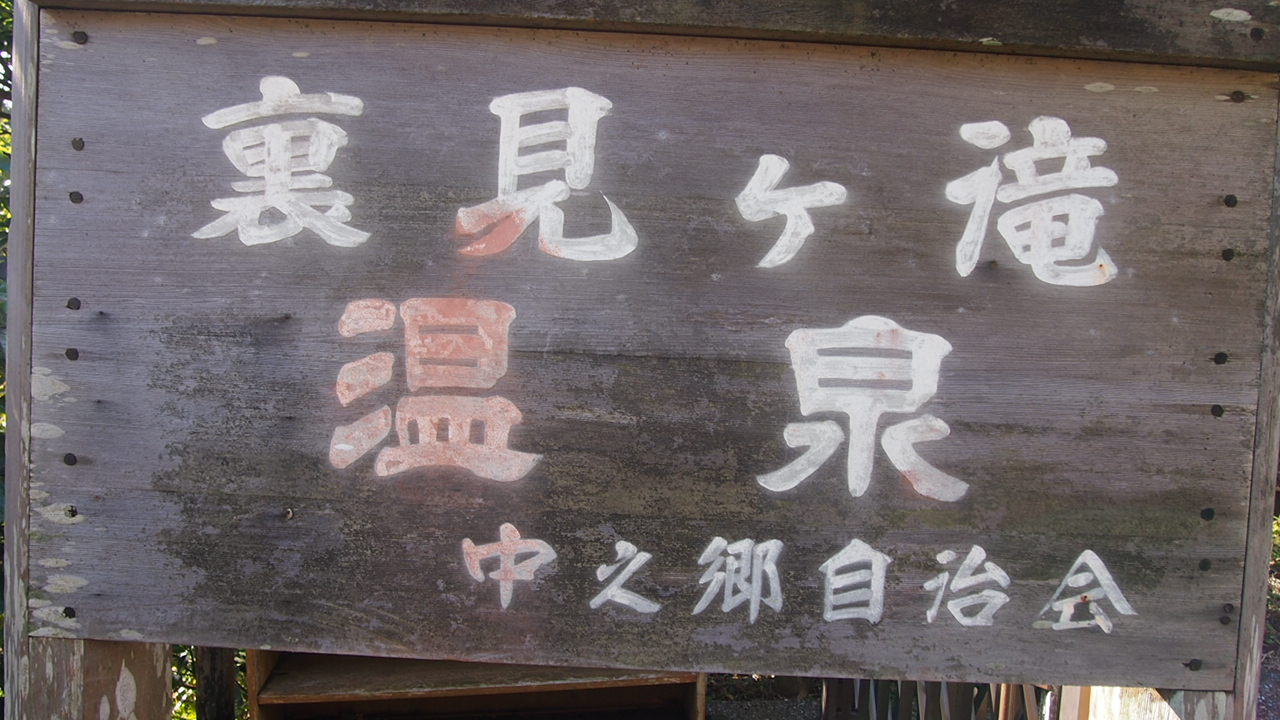 裏見ヶ滝
温泉
中之郷自治会